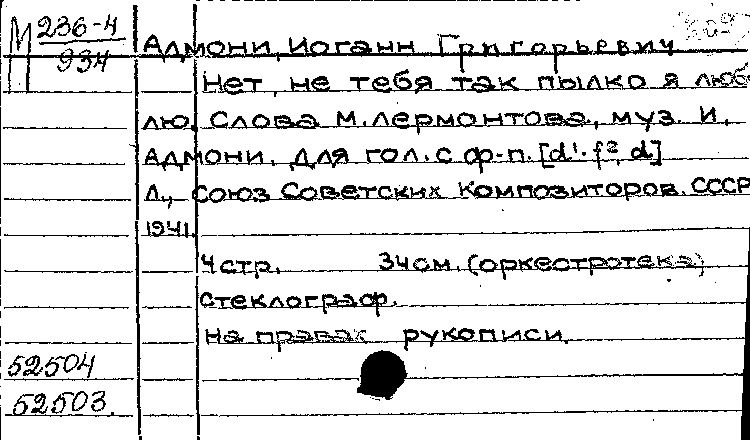 М 236-4
934
Адмони, Иоганн Григорьевич
Нет, не тебя так пылко я люб
лю. Слова М. Лермонтова, муз. И.
Адмони. Для гол. с ф-п. [d¹-f², d]
Л., Союз Советских Композиторов СССР
1941.
4 стр. 34 см. (оркестротека)
Стеклограф.
На правах рукописи.
52504
52503.